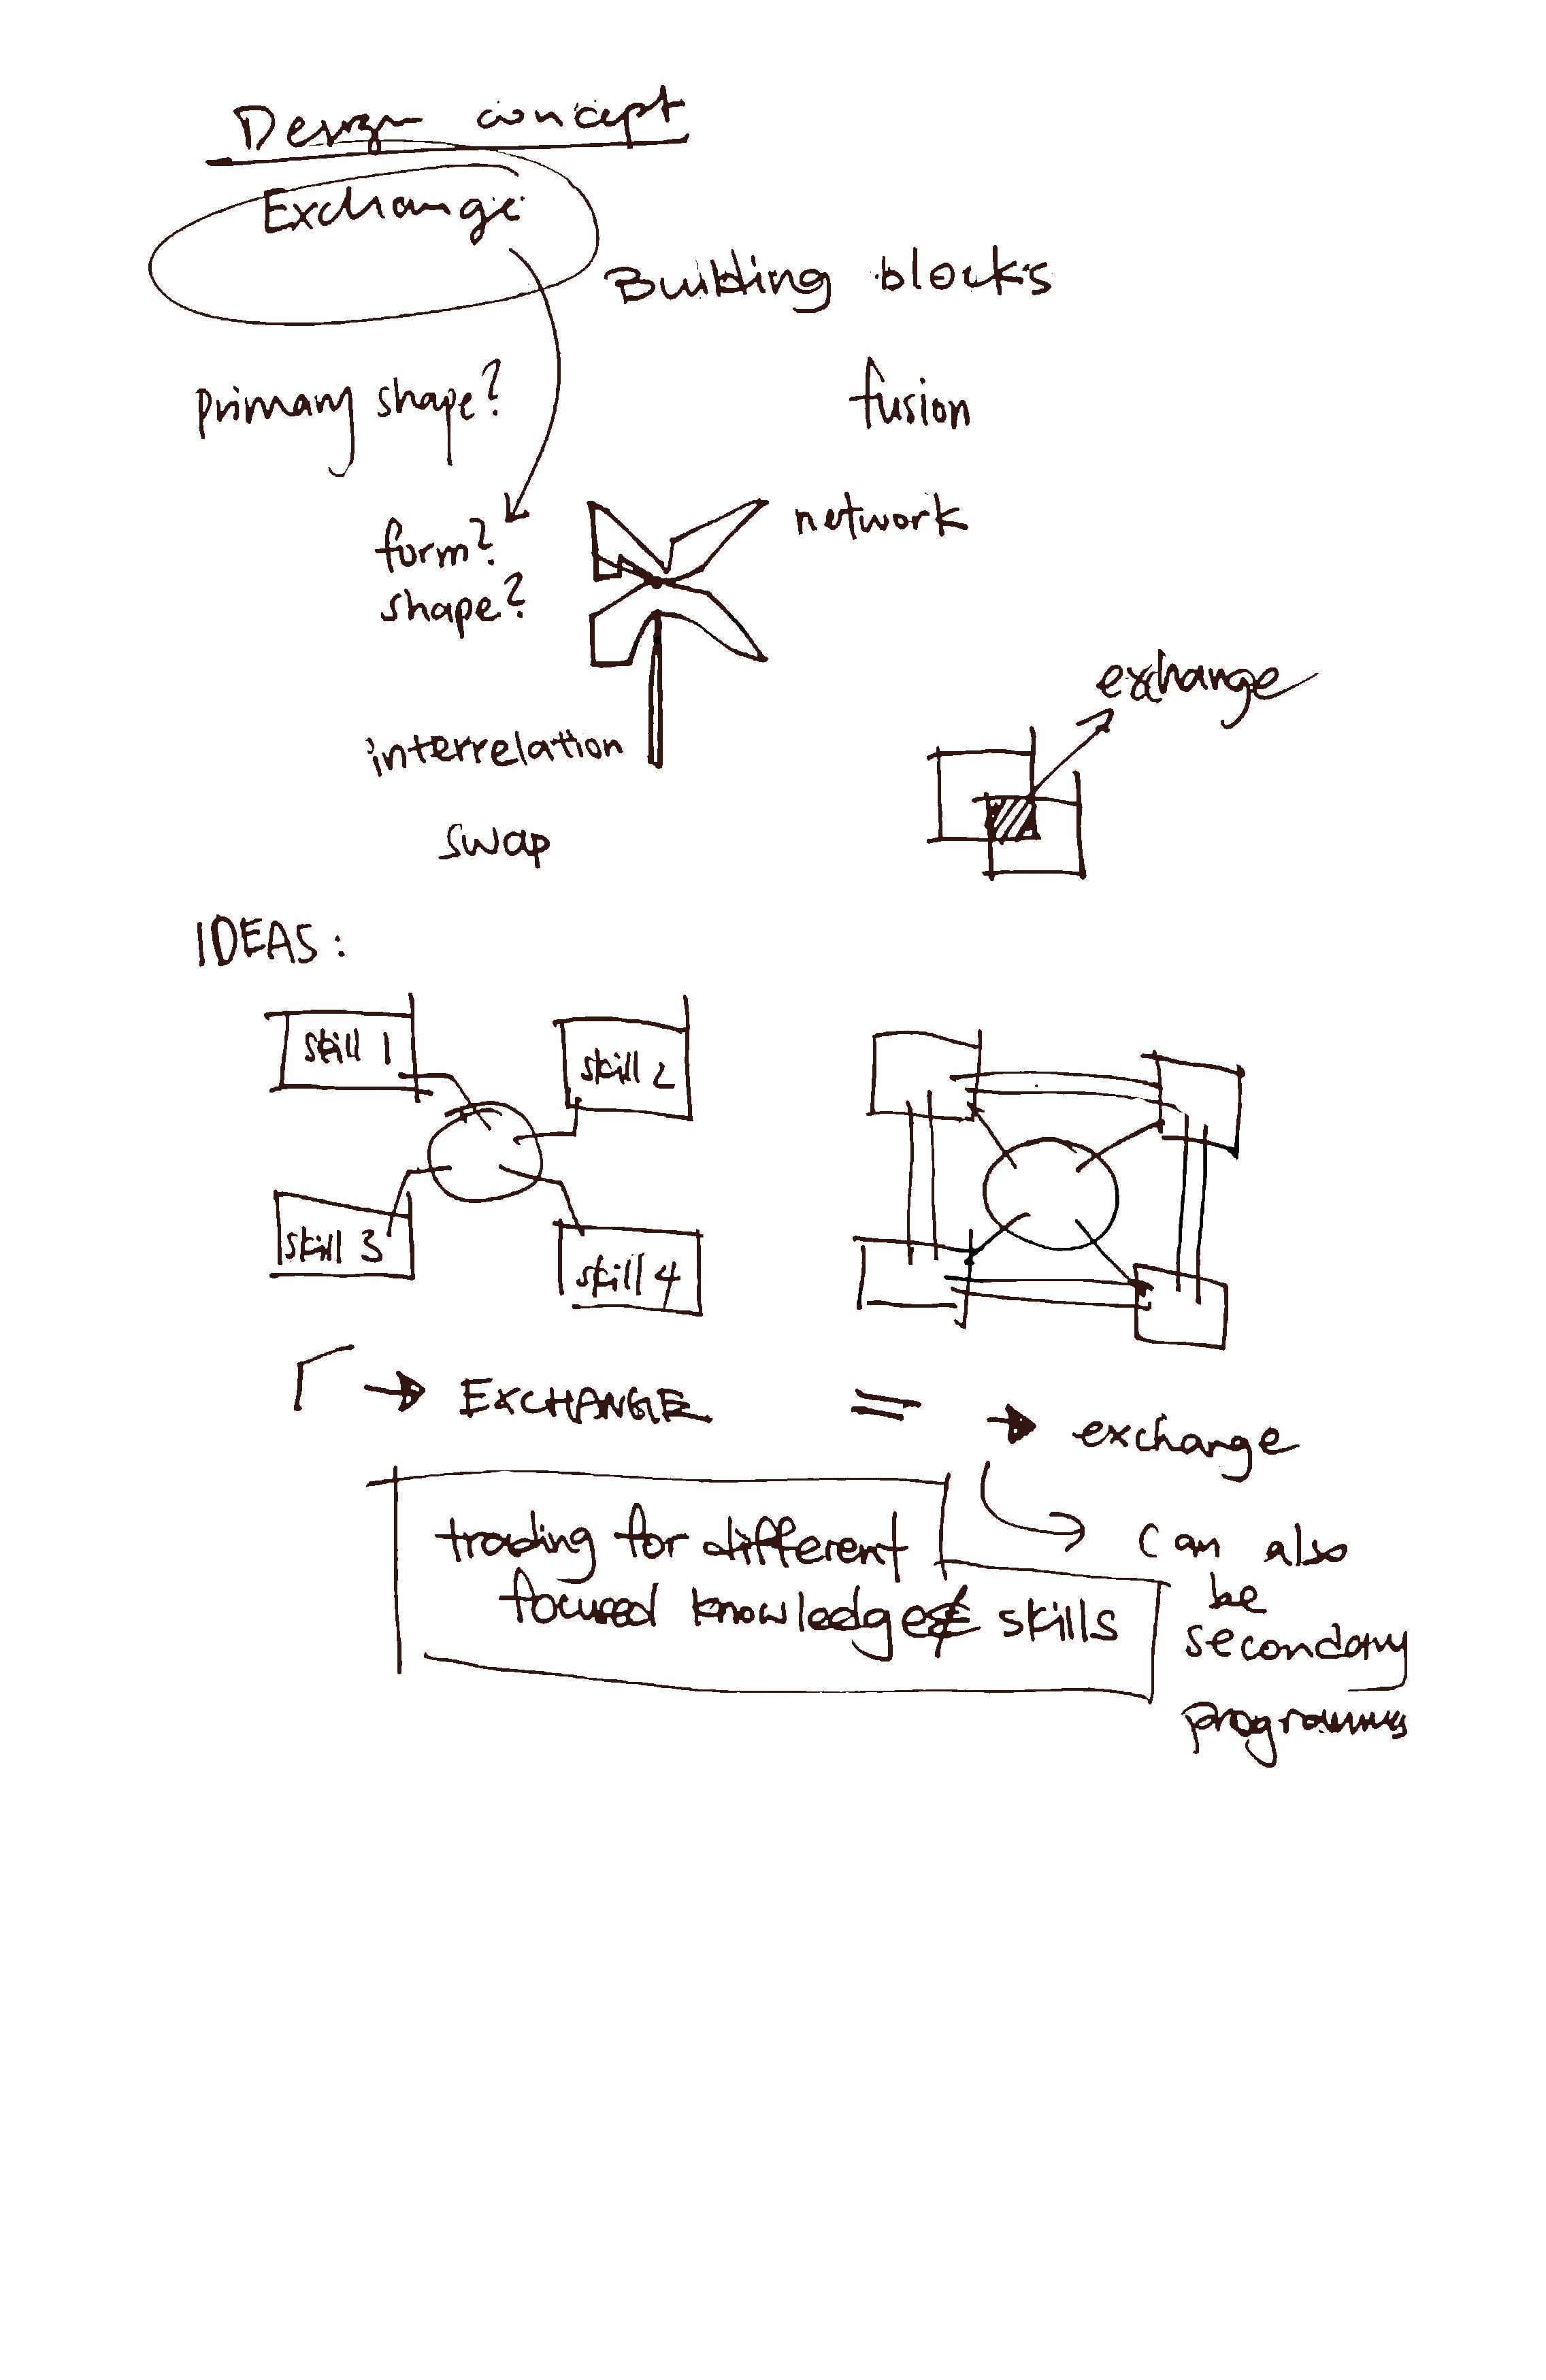 Design concept
Exchange
Building blocks
primary shape?
fusion
form?
network
shape?
exchange
interrelation
swap
IDEAS:
skill 1
skill 2
skill 3
skill 4
→ EXCHANGE = → exchange
trading for different
focused knowledge & skills
can also
be
secondary
programmes